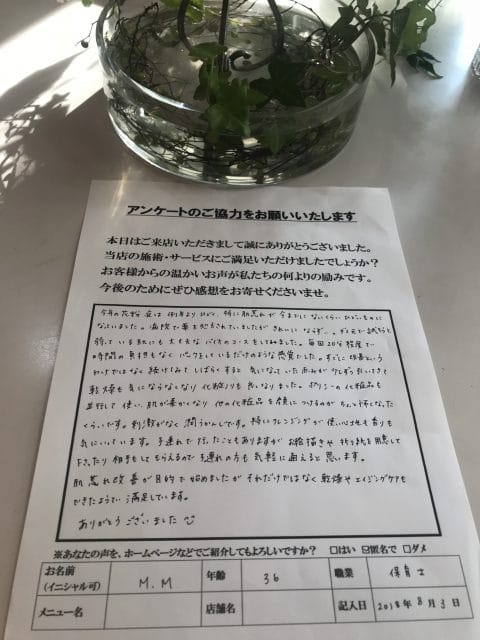 アンケートのご協力をお願いいたします
本日はご来店いただきまして誠にありがとうございました。
当店の施術・サービスにご満足いただけましたでしょうか？
お客様からの温かいお声が私たちの何よりの励みです。
今後のためにぜひ感想をお寄せくださいませ。
今年の花粉症は例年よりひどく、特に肌荒れが今までにないくらいひどいものに
なっていました。病院で薬も処方されていましたがきれいにならず…。ダメ元で試そうと
持っていました
時間の負担もなく パックをしているだけのような感覚でした。すぐに改善という
わけではなく 続けてみて しばらくすると 気になっていた赤みが少しずつ引いてきて
乾燥も気にならなくなり 化粧ノリも良くなりました。ホリシーの化粧品も
並行して使い、肌が柔かくなり 他の化粧品を顔につけるのがちょっと怖くなった
くらいです。刺激がなく潤うかんじです。特にクレンジングが使い心地も香りも
気にいっています。子連れで行ったこともありますが お絵描きや折り紙を用意して
下さったり相手もしてもらえるので子連れの方も気軽に通えると思います。
肌荒れ改善が目的で始めましたが それだけではなく乾燥やエイジングケアも
できたようで満足しています。
ありがとうございました
※あなたの声を、ホームページなどでご紹介してもよろしいですか？ □はい ☑匿名で □ダメ
お名前 (イニシャル可) M.M 年齢 36 職業 保育士
メニュー名 店舗名 記入日 2018年8月3日